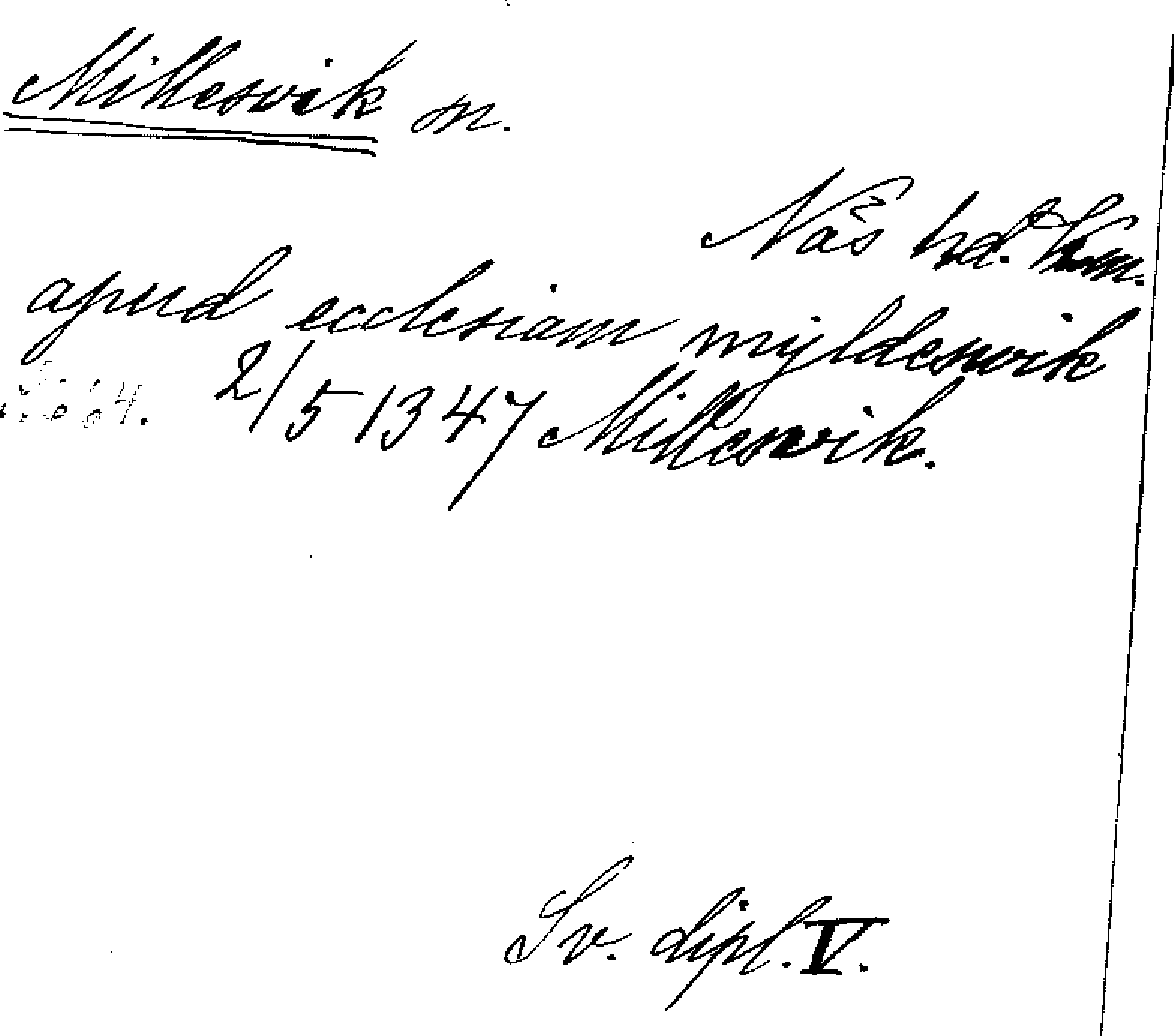 Millesvik sn.
Näs hd.
apud ecclesiam myldeswik
2/5 1347 Millesvik.
Sv. dipl. V.